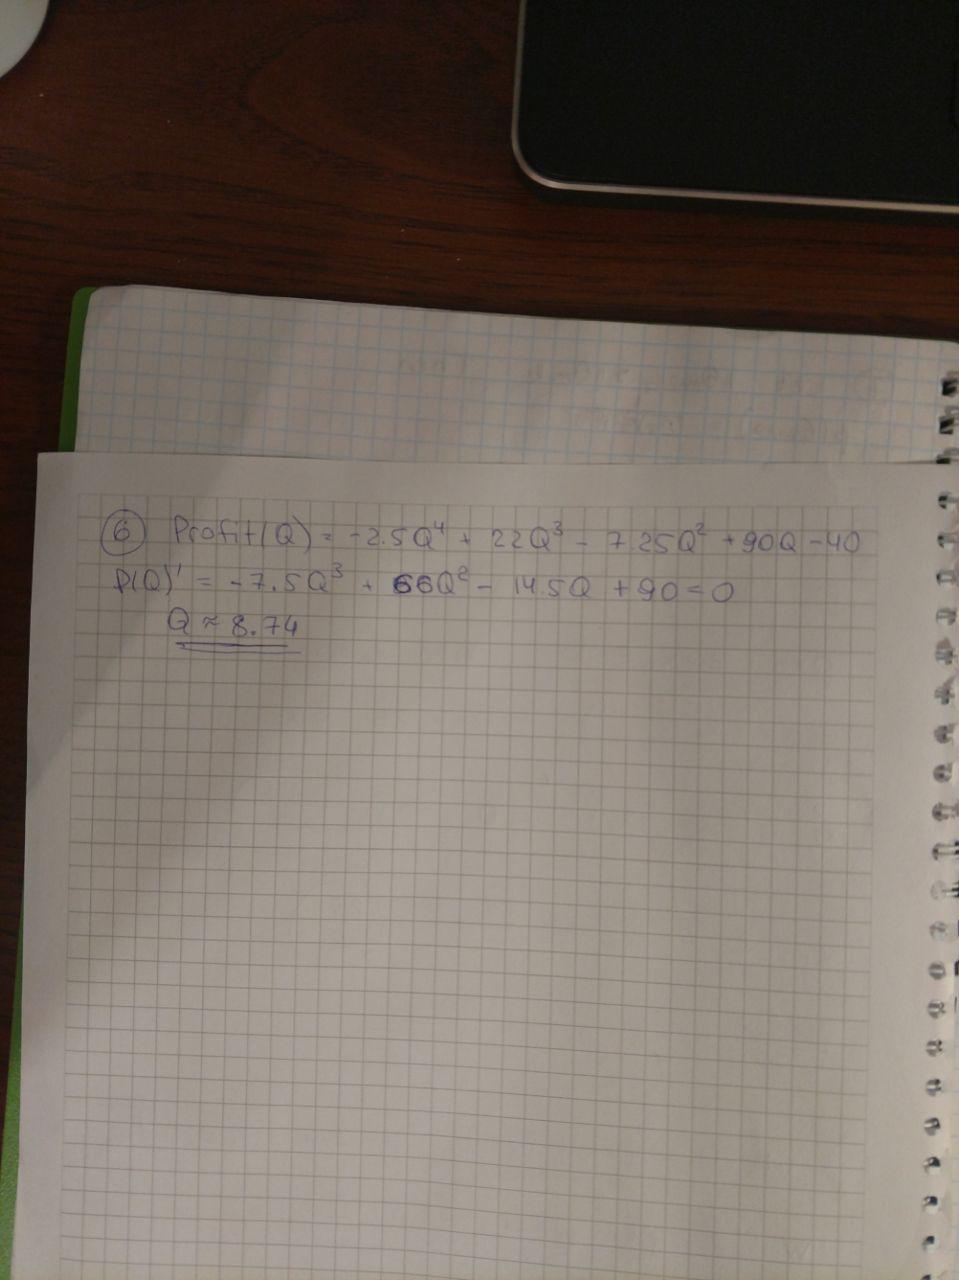 6 Profit(Q) = -2.5Q⁴ + 22Q³ - 7.25Q² + 90Q - 40
P(Q)' = -7.5Q³ + 66Q² - 14.5Q + 90 = 0
Q ≈ 8.74